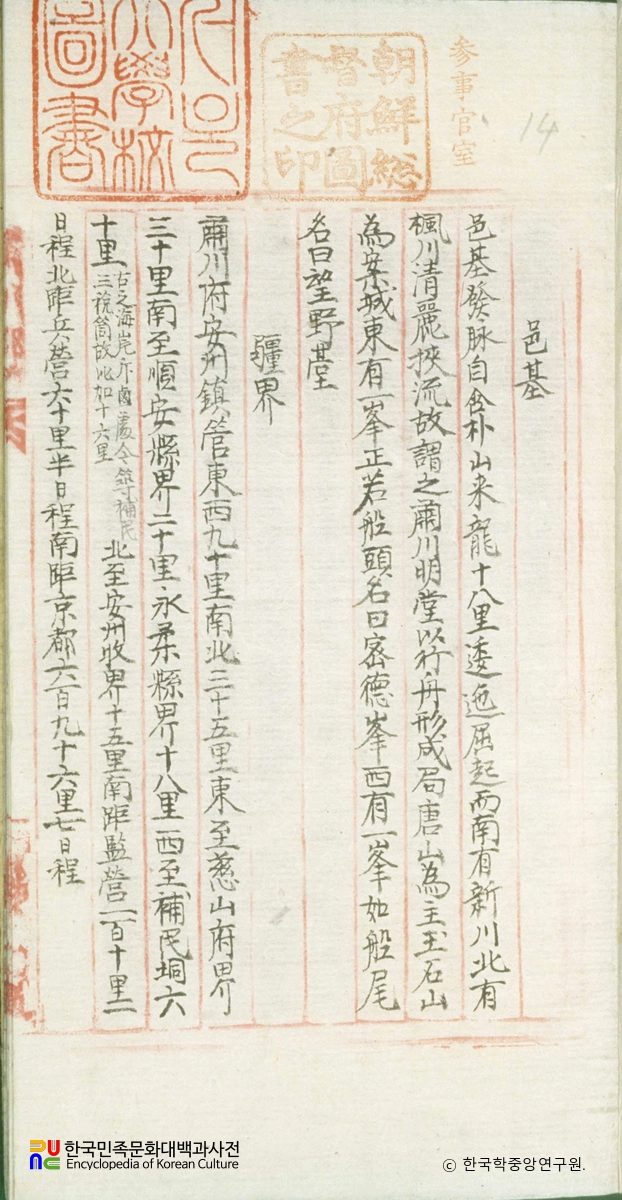 參事官室
14
朝鮮總
督府圖
書之印
大學校
圖書
邑基
邑基發脉自含朴山来龍十八里逶迤屈起而南有新川北有
楓川清麗挾流故謂之肅川明堂以行舟形成局唐山為主玉石山
為案城東有一峯正若船頭名曰密德峯西有一峯如船尾
名曰望野臺
疆界
肅川府安州鎮管東西九十里南北三十五里東至慈山府界
三十里南至順安縣界二十里永柔縣界十八里西至補民垌六
十里
古之海崖斥鹵處今築補民
三祝筒故此加十六里
北至安州牧界十五里南距監營一百十里二
日程北距兵營六十里半日程南距京都六百九十六里七日程
한국민족문화대백과사전
Encyclopedia of Korean Culture
ⓒ 한국학중앙연구원.